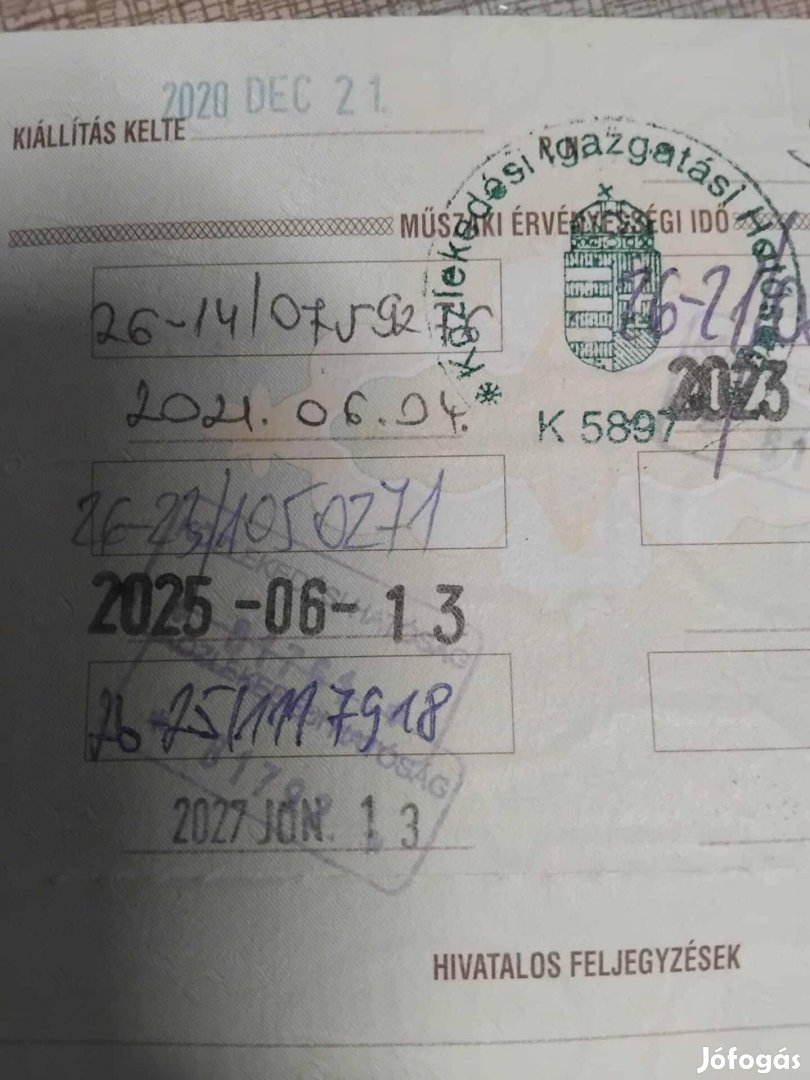 2020 DEC 21.
KIÁLLÍTÁS KELTE
Közlekedési Igazgatási Hatóság
MŰSZAKI ÉRVÉNYESSÉGI IDŐ
26-14/0759276
26-21/
2021. 06. 04.
K 5897
2023
26-23/1050271
2025-06-13
26-25/1117918
KÖZLEKEDÉSI HATÓSÁG
2027 JÚN. 13
HIVATALOS FELJEGYZÉSEK
Jófogás